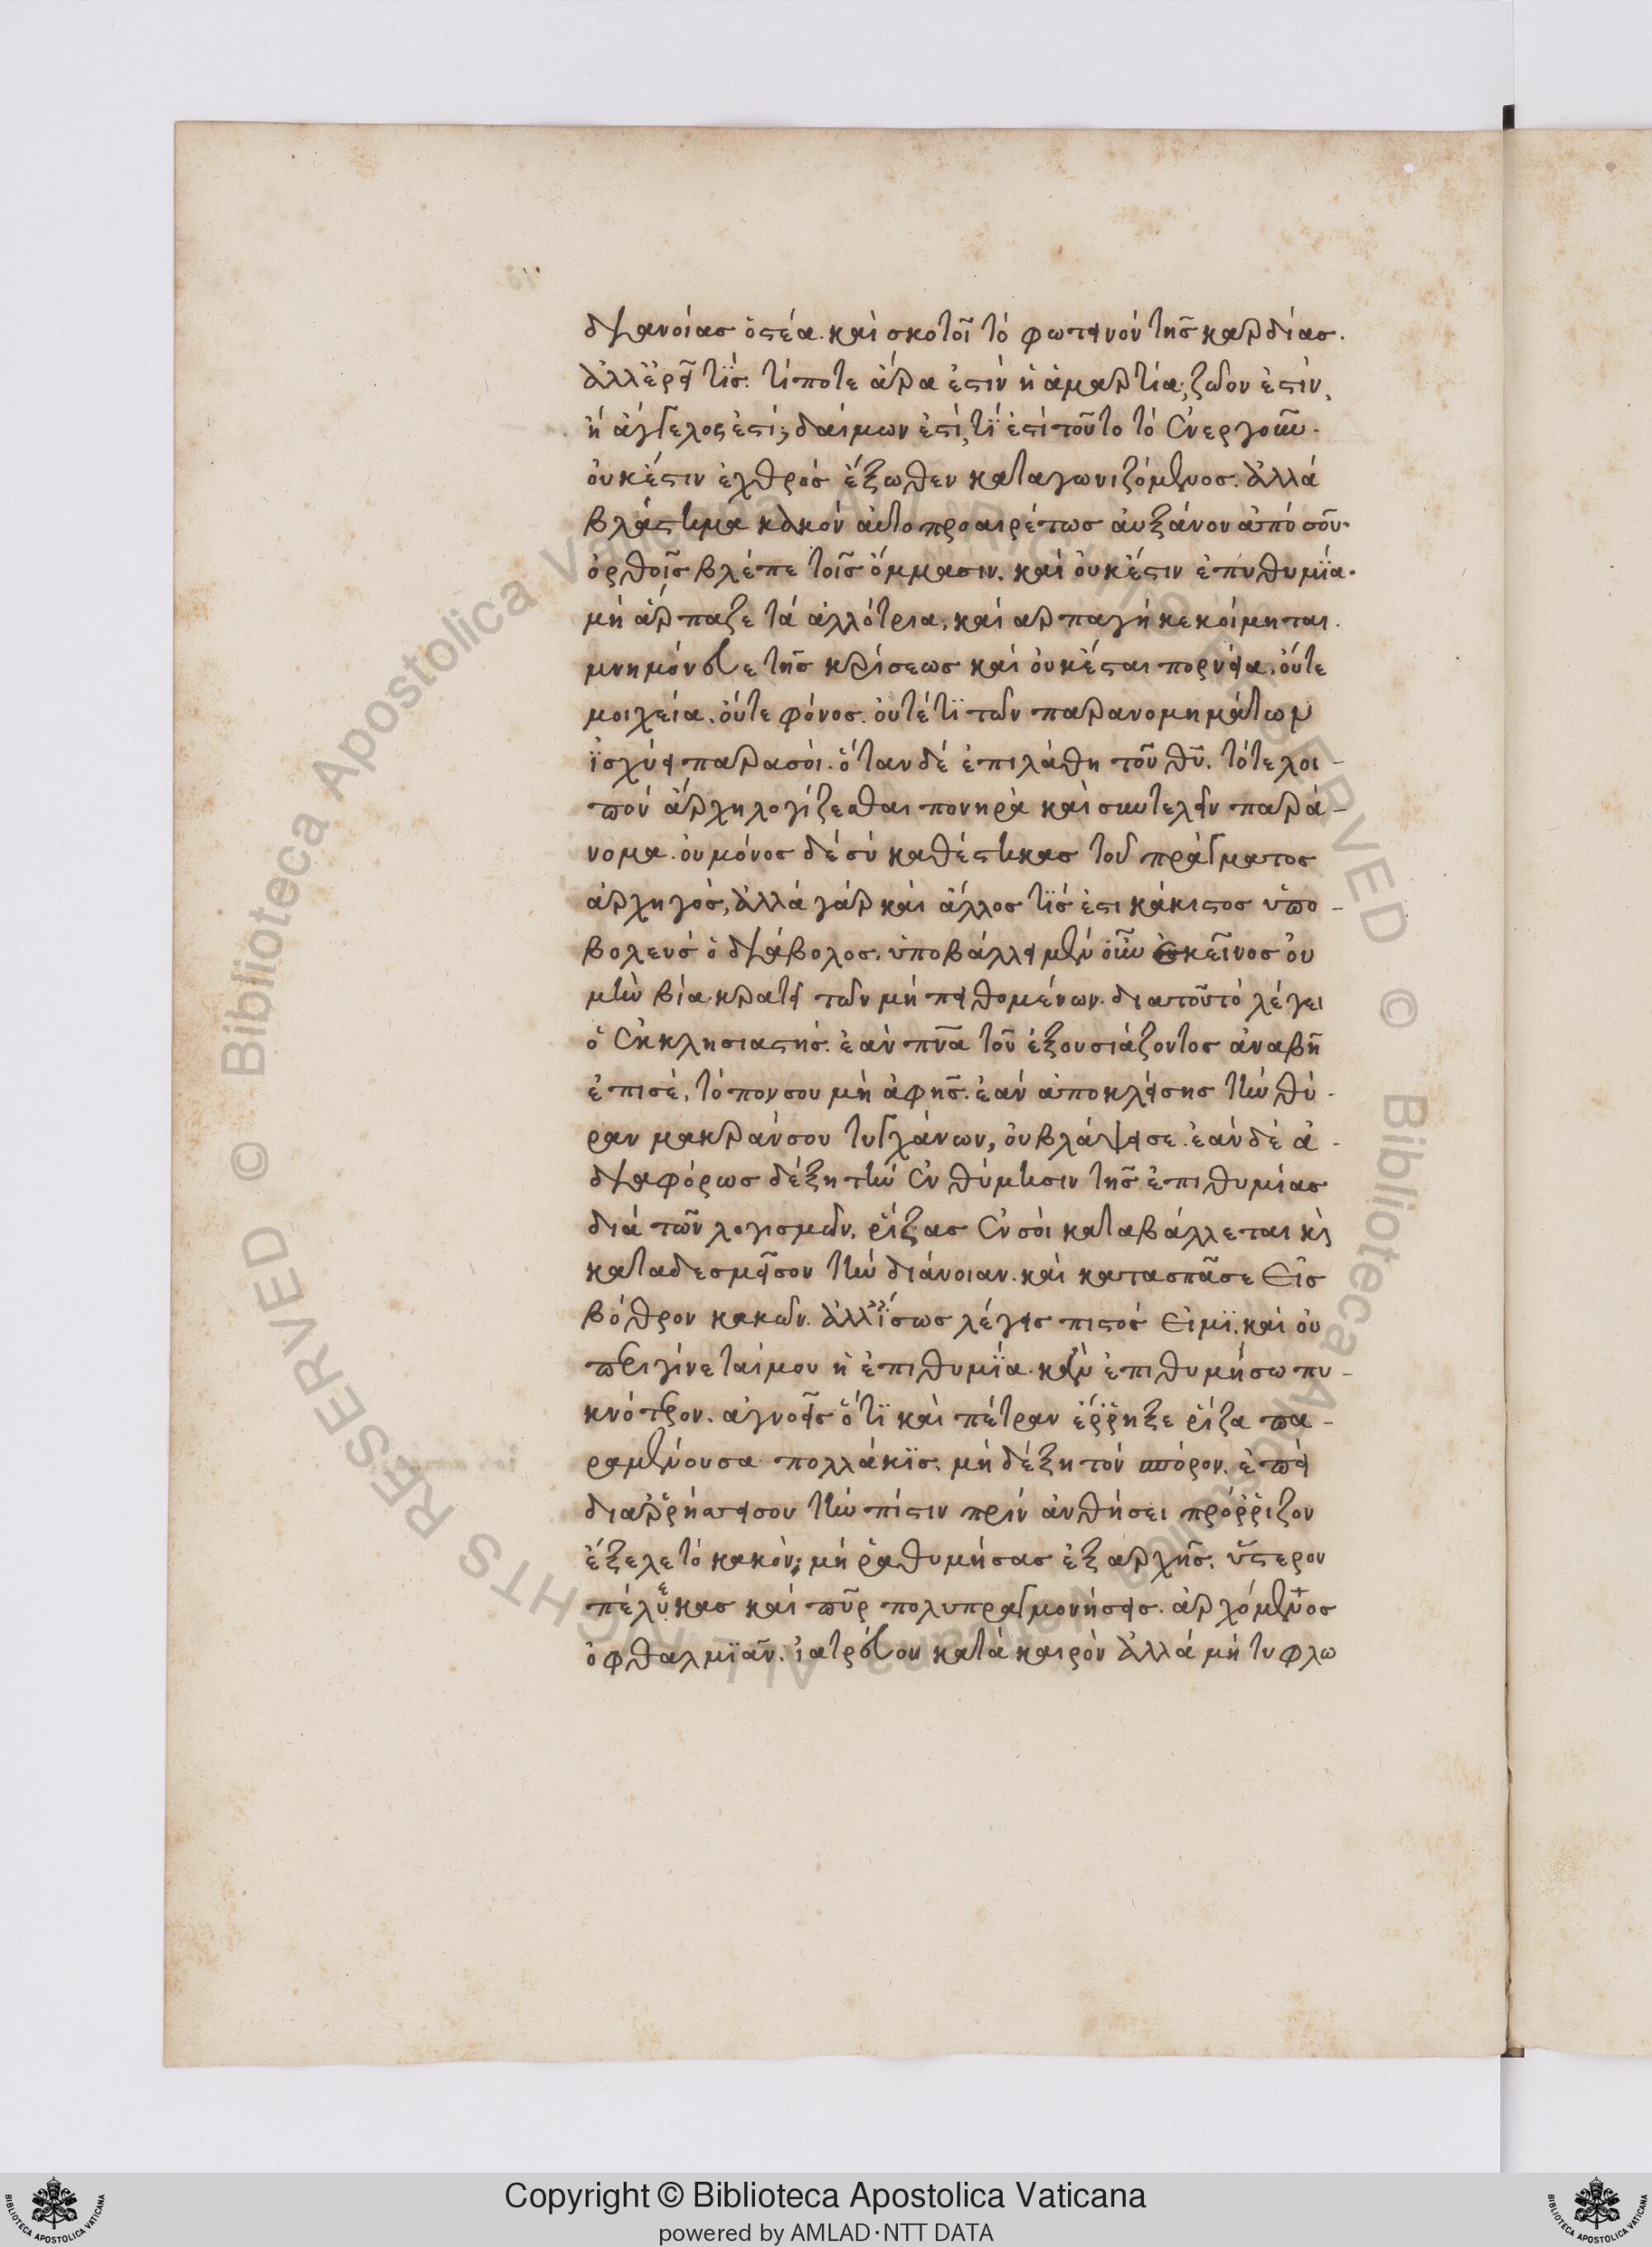 διανοίας ὀστέα. καὶ σκοτοῖ τὸ φωτεινόν τῆς καρδίας.
ἀλλ' ἐρεῖ τίς. τί ποτε ἄρα ἐστίν ἡ ἁμαρτία; ζῶον ἐστίν,
ἤ ἄγγελος ἐστί; δαίμων ἐστί, τί ἐστί τοῦτο τό ἐνεργοῦν.
οὐκ ἔστιν ἐχθρός ἔξωθεν καταγωνιζόμενος. ἀλλά
βλάστημα κακόν αὐτοπροαιρέτως αὐξάνον ἀπό σοῦ.
ὀρθοῖς βλέπε τοῖς ὄμμασιν. καί οὐκ ἔστιν ἐπιθυμία.
μή ἅρπαζε τά ἀλλότρια, καί αρπαγή κεκοίμηται.
μνημόνευε τῆς κρίσεως καί οὐκ ἔσται πορνεία. οὔτε
μοιχεία. οὔτε φόνος. οὐτέ τϊ τῶν παρανομημάτων
ϊσχύει παρασόι. ὅταν δέ ἐπιλάθη τοῦ θῦ. τότε λοι-
πόν ἄρχη λογίζεσθαι πονηρὰ καὶ συντελεῖν παρά-
νομα. ου μόνος δέ σύ καθέστηκας τοῦ πράγματος
ἀρχηγός, ἀλλά γάρ καί ἄλλος τίς ἐστι κάκιστος ὑπο-
βολεύς ὁ διάβολος. ὑποβάλλει μέν οὖν ἐκεῖνος ου
μήν βία κρατεῖ τῶν μή πειθομένων. διατοῦτό λέγει
ὁ ἐκκλησιαστής. ἐάν πνᾶ τοῦ ἐξουσιάζοντος ἀναβῆ
ἐπισέ, τόπον σου μή ἀφῆς. ἐάν ἀποκλείσης τήν θύ-
ραν μακράν σου τυγχάνων, οὐ βλάψει σε. ἐάν δέ ἀ-
διαφόρως δέξη τήν ἐνθύμησιν τῆς ἐπιθυμίας
διά τῶν λογισμῶν, ῥίζας ἐν σοί καταβάλλεται κὶ
καταδεσμεῖ σου τήν διάνοιαν. καί κατασπᾶ σε εἰς
βόθρον κακῶν. ἀλλ' ϊσως λέγεις πιστός εἰμϊ. καί οὐ
περιγίνεταί μου ἡ ἐπιθυμία. κἄν ἐπιθυμήσω πυ-
κνότερον. αγνοεῖς ὅτϊ καί πέτραν ἐρρηξε ρίζα πα-
ραμένουσα πολλάκις. μή δέξη τόν σπόρον. ἐπεί
διαρρήσσει σου τήν πίστιν πρίν ἀνθήσει πρόρριζον
ἔξελε τό κακόν; μή ῥαθυμήσας ἐξ αρχῆς. ὕστερον
πέλυκας καί πῦρ πολυπραγμονήσεις. ἀρχόμενος
ὀφθαλμιᾶν. ἰατρεύου κατά καιρόν ἀλλά μή τυφλω